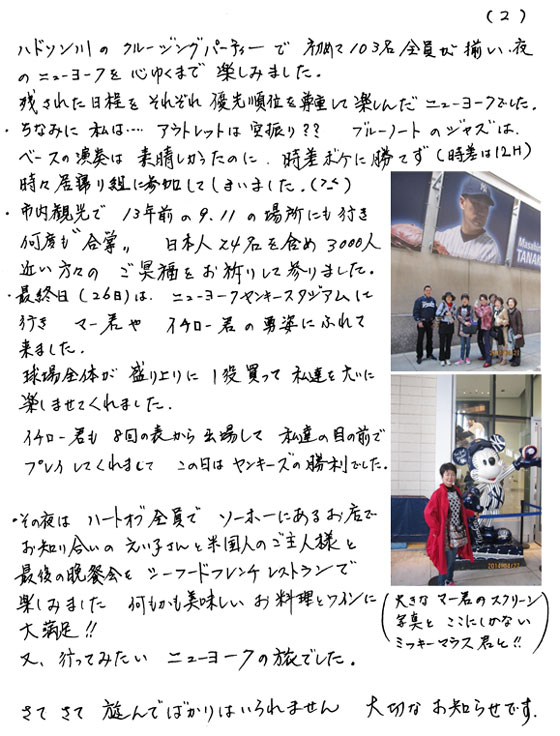 (2)
ハドソン川の クルージングパーティーで 初めて103名全員が揃い、夜
のニューヨークを心ゆくまで 楽しみました。
残された日程を それぞれ 優先順位を尊重して楽しんだ ニューヨークでした。
・ちなみに 私は… アウトレットは空振り?? ブルーノートのジャズは、
ベースの演奏は 素晴しかったのに、時差ボケに勝てず(時差は12H)
時々居寝り組に参加してしまいました。
・市内観光で 13年前の9.11の場所にも行き
何度も"合掌〃 日本人24名を含め3000人
近い方々の ご冥福をお祈りして参りました。
・最終日(26日)は、ニューヨークヤンキースタジアムに
行き マー君や イチロー君の勇姿にふれて
来ました。
球場全体が 盛り上りに 1役買って 私達を大いに
楽しませてくれました。
イチロー君も 8回の表から出場して 私達の目の前で
プレイしてくれまして この日はヤンキーズの勝利でした。
・その夜は ハートオブ全員で ソーホーにあるお店で
お知り合いの えい子さんと米国人のご主人様と
最後の晩餐会を シーフードフレンチレストランで
楽しみました 何もかも美味しい お料理とワインに
大満足!!
又、行ってみたい ニューヨークの旅でした。
さて さて 遊んでばかりはいられません 大切な お知らせです。
Masahiro
TANAKA
(大きな マー君のスクリーン
写真と ここにしかない
ミッキーマウス君と!!)